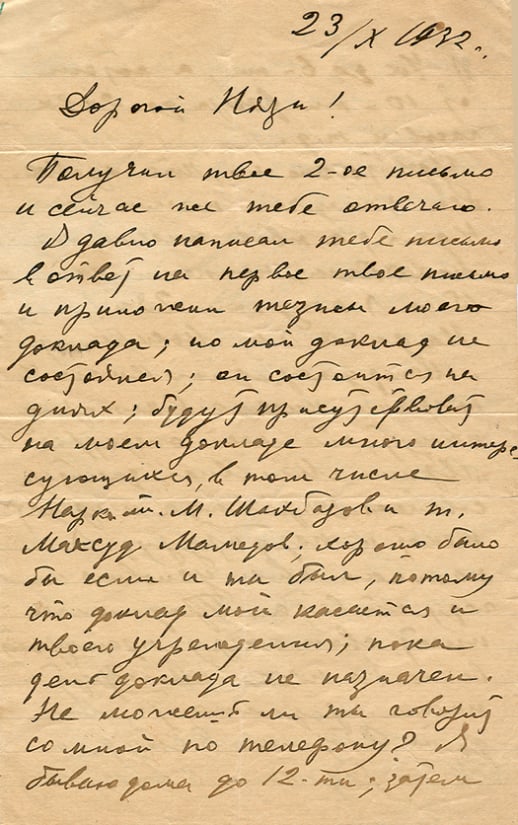 23/X 1932 г.
Дорогой Нязи!
Получил твое 2-ое письмо
и сейчас же тебе отвечаю.
Я давно написал тебе письмо
в ответ на первое твое письмо
и приложены тезисы моего
доклада; но мой доклад не
состоялся; он состоится на
днях; будут присутствоват
на моем докладе много интере
сующихся, в том числе
Нарком. М. Шахбазов и т.
Максуд Мамедов; хорошо было
бы если и ты был, потому
что доклад мой касается и
твоего учреждения; пока
день доклада не назначен.
Не можешь ли ты говорит
со мной по телефону? Я
бываю дома до 12-ти; затем